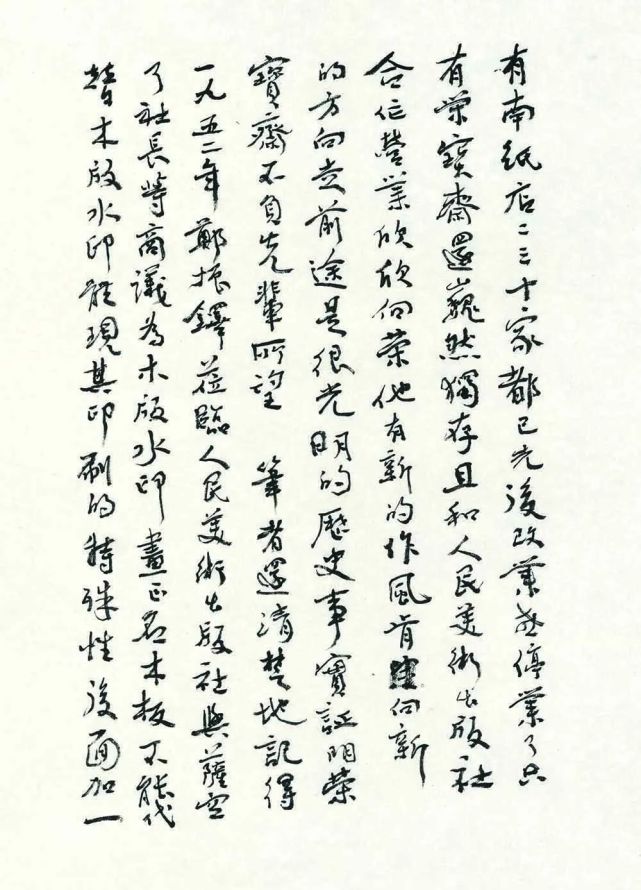 有南紙店二三十家都已先後改業或停業了只
有榮寶齋還巍然獨存且和人民美術出版社
合作營業欣欣向榮他有新的作風肯向新
的方向走前途是很光明的歷史事實証明榮
寶齋不負先輩所望　筆者還清楚地記得
一九五二年鄭振鐸蒞臨人民美術出版社與薩空
了社長等商議為木版水印畫正名木板不能代
替木版水印體現其印刷的特殊性後面加一